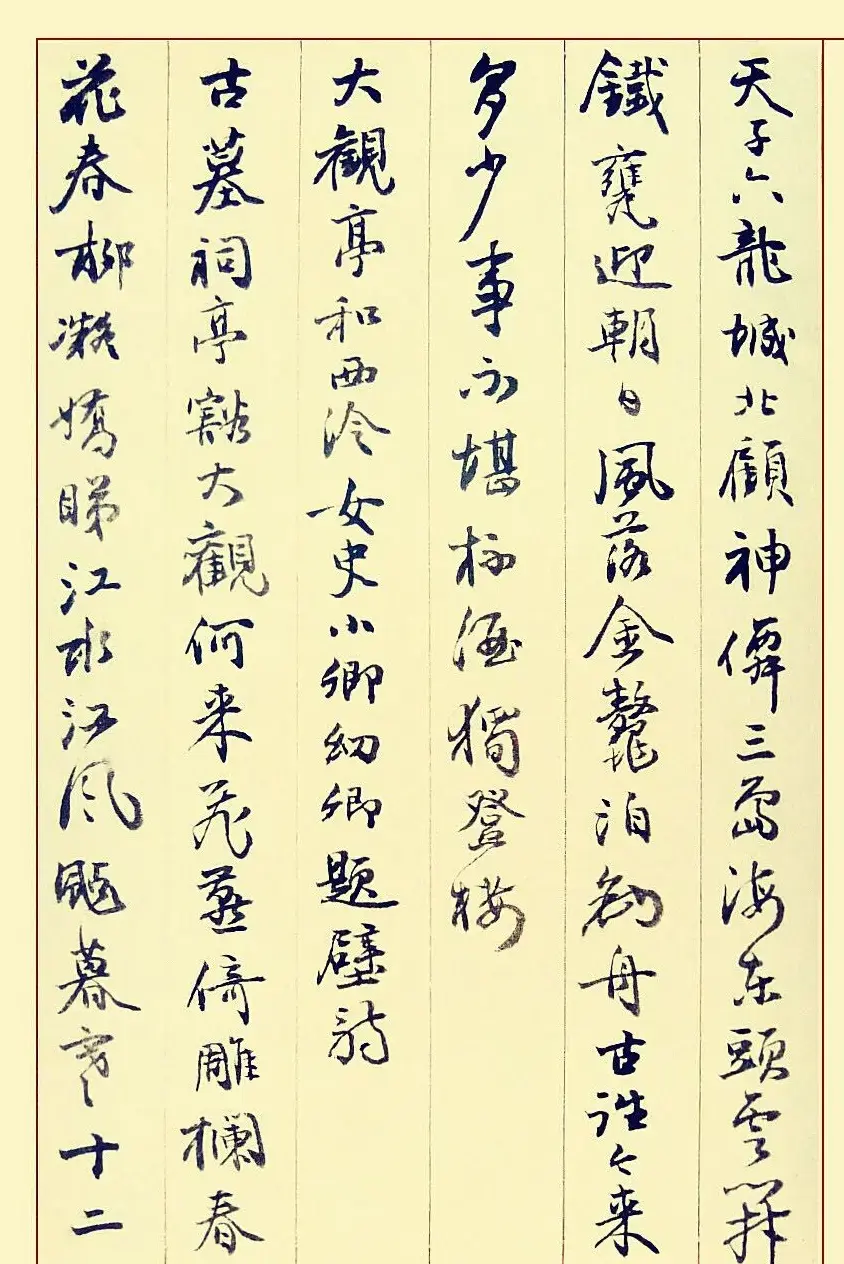 天子六龍城北顧神僊三島海東頭雲開
鐵甕迎朝日風落金鼇泊釣舟古往今来
多少事不堪杯酒獨登樓
大觀亭和西泠女史小卿幼卿題壁詩
古墓祠亭豁大觀何来花蕊倚雕欄春
花春柳凝嬌睇江水江風颭暮寒〻十二